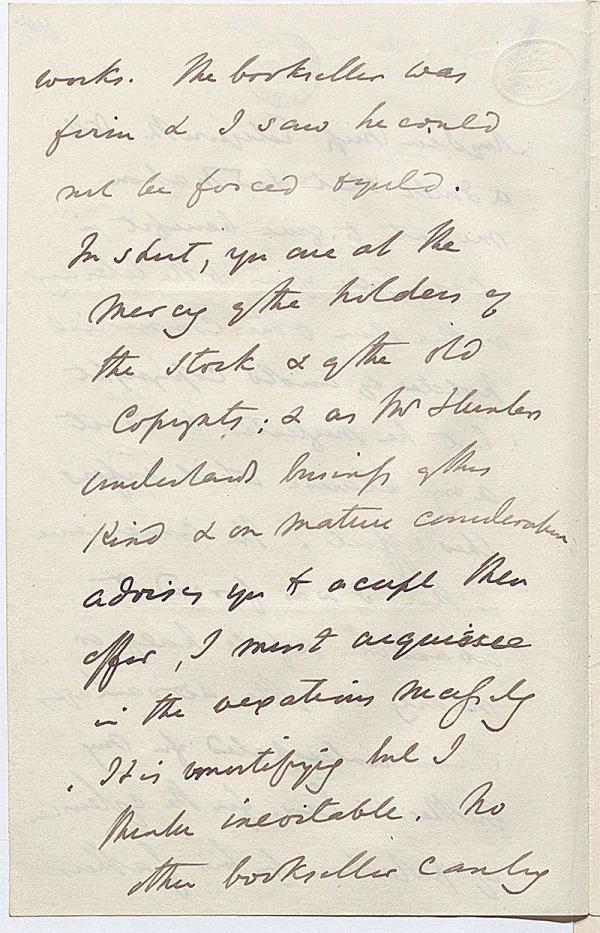 works. The bookseller was
firm & I saw he could
not be forced to yield.
In short, you are at the
mercy of the holders of
the stock & of the old
Copyrights; & as Mr Hunter
understands business of this
kind & on mature consideration
advises you to accept their
offer, I must acquiesce
in the vexatious necessity
It is mortifying but I
think inevitable. No
other bookseller can buy